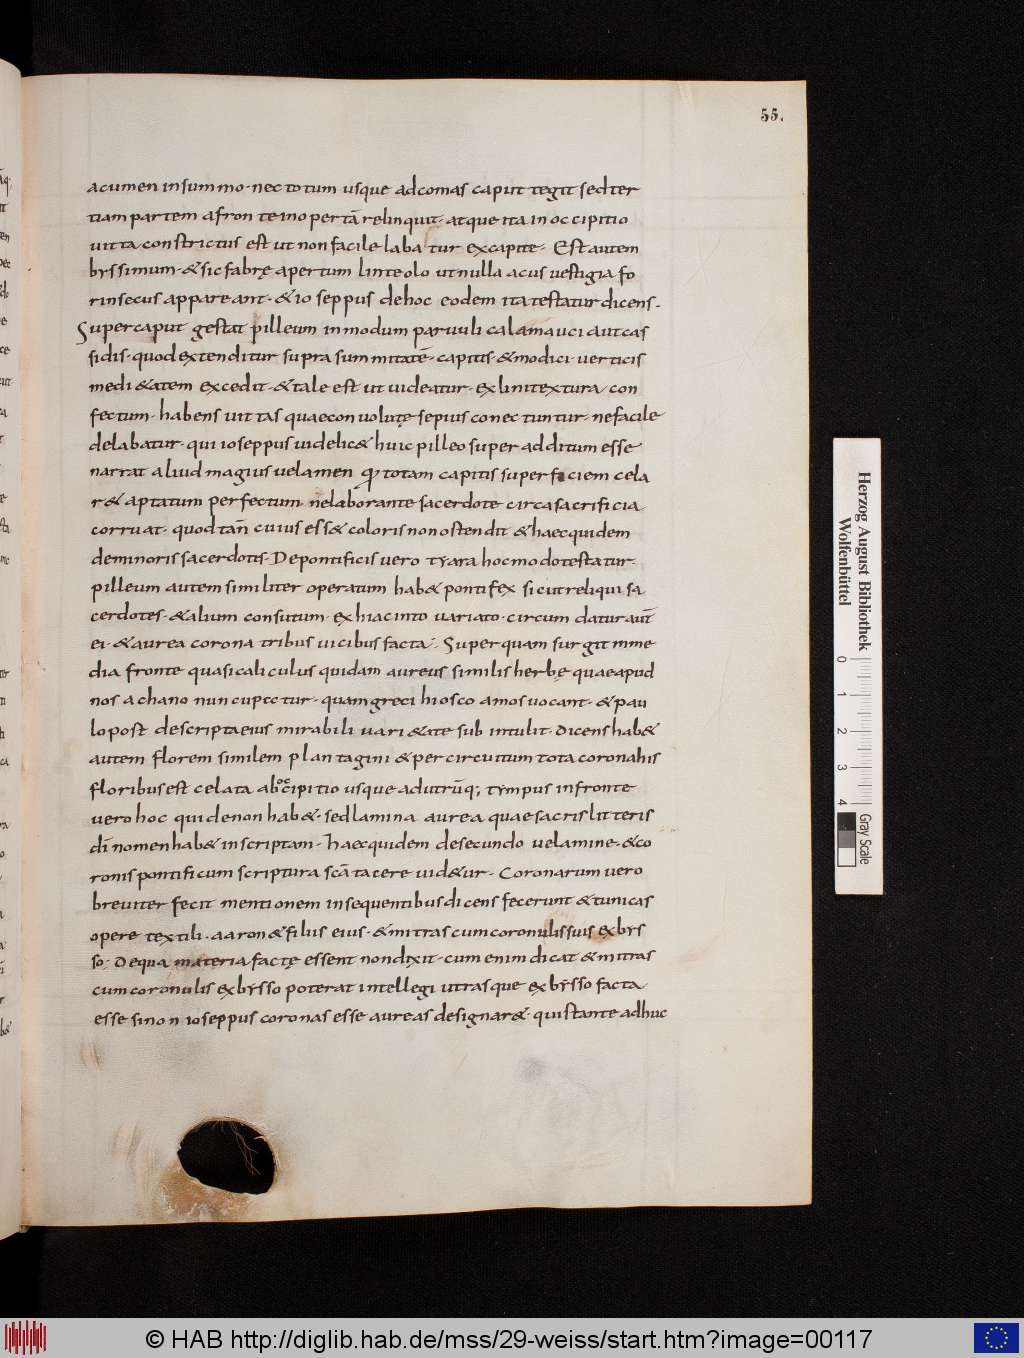 55.
acumen in summo· nec totum usque ad comas caput tegit sed ter
tiam partem a fronte inopertā relinquit· atque ita in occipitio
uitta constrictus est ut non facile labatur ex capite· Est autem
byssimum· & sic fabrę apertum linteolo ut nulla acus uestigia fo
rinsecus appareant· & ioseppus de hoc eodem ita testatur dicens·
Super caput gestat pilleum in modum paruuli calamauci aut cas
sidis· quod extenditur supra summitatē· capitis· & modici· uerticis
medi&atem excedit· & tale est ut uideatur· ex lini textura· con
fectum· habens uittas quae conuolutę sepius conectuntur· ne facile
delabatur· qui ioseppus uidelic& huic pilleo super additum esse
narrat aliud magius uelamen qđ totam capitis superficiem cela
r& aptatum perfectum· ne laborante sacerdote circa sacrificia
corruat· quod tam̄ cuius ess& coloris non ostendit & haec quidem
de minoris sacerdotis· De pontificis uero tyara hoc modo testatur·
pilleum autem similiter operatum hab& pontifex sicut reliqui sa
cerdotes· & alium consutum· ex hiacinto uariato· circum datur aut̄
ei· & aurea corona tribus uicibus facta· Super quam surgit in me
dia fronte quasi caliculus quidam aureus similis herbę quae apud
nos achano nuncupctur· quam greci hiosco amos uocant· & pau
lo post descripta eius mirabili uari&ate sub intulit· dicens hab&
autem florem similem plantagini & per circuitum tota corona his
floribus est celata ab occipitio usque ad utrūq; tympus in fronte
uero hoc quidem non hab&· sed lamina aurea quae sacris litteris
dī nomen hab& inscriptam· haec quidem de secundo uelamine· & co
ronis pontificum scriptura scā tacere uid&ur· Coronarum uero
breuiter fecit mentionem in sequentibus dicens fecerunt & tunicas
opere textili· aaron & filiis eius· & mitras cum coronulis suis ex bys
so· De qua materia factę essent non dixit· cum enim dicat & mitras
cum coronulis ex bysso poterat intellegi utrasque ex bysso facta
esse si non ioseppus coronas esse aureas designar&· qui stante adhuc
Herzog August Bibliothek
Wolfenbüttel
0 1 2 3 4
Gray Scale
© HAB http://diglib.hab.de/mss/29-weiss/start.htm?image=00117